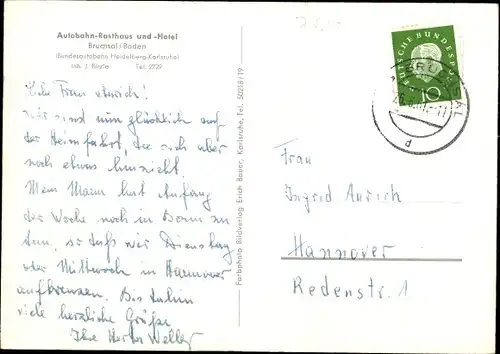 Autobahn-Rasthaus und -Hotel
Bruchsal/Baden
(Bundesautobahn Heidelberg-Karlsruhe)
Inh. J. Tel. 2729
Liebe Frau
Wir sind nun glücklich auf
der Heimfahrt, die sich aber
noch etwas hinzieht.
Mein Mann hat Anfang
der Woche noch in Bonn zu
tun, so daß wir Dienstag
oder Mittwoch in Hannover
aufkreuzen. Bis dahin
viele herzliche Grüße
Ihre Herta
Farbphoto Bildverlag Erich Bauer, Karlsruhe, Tel. 50218/19
DEUTSCHE BUNDESPOST
10
BRUCHSAL
d
Frau
Ingrid
Hannover
Redenstr. 1